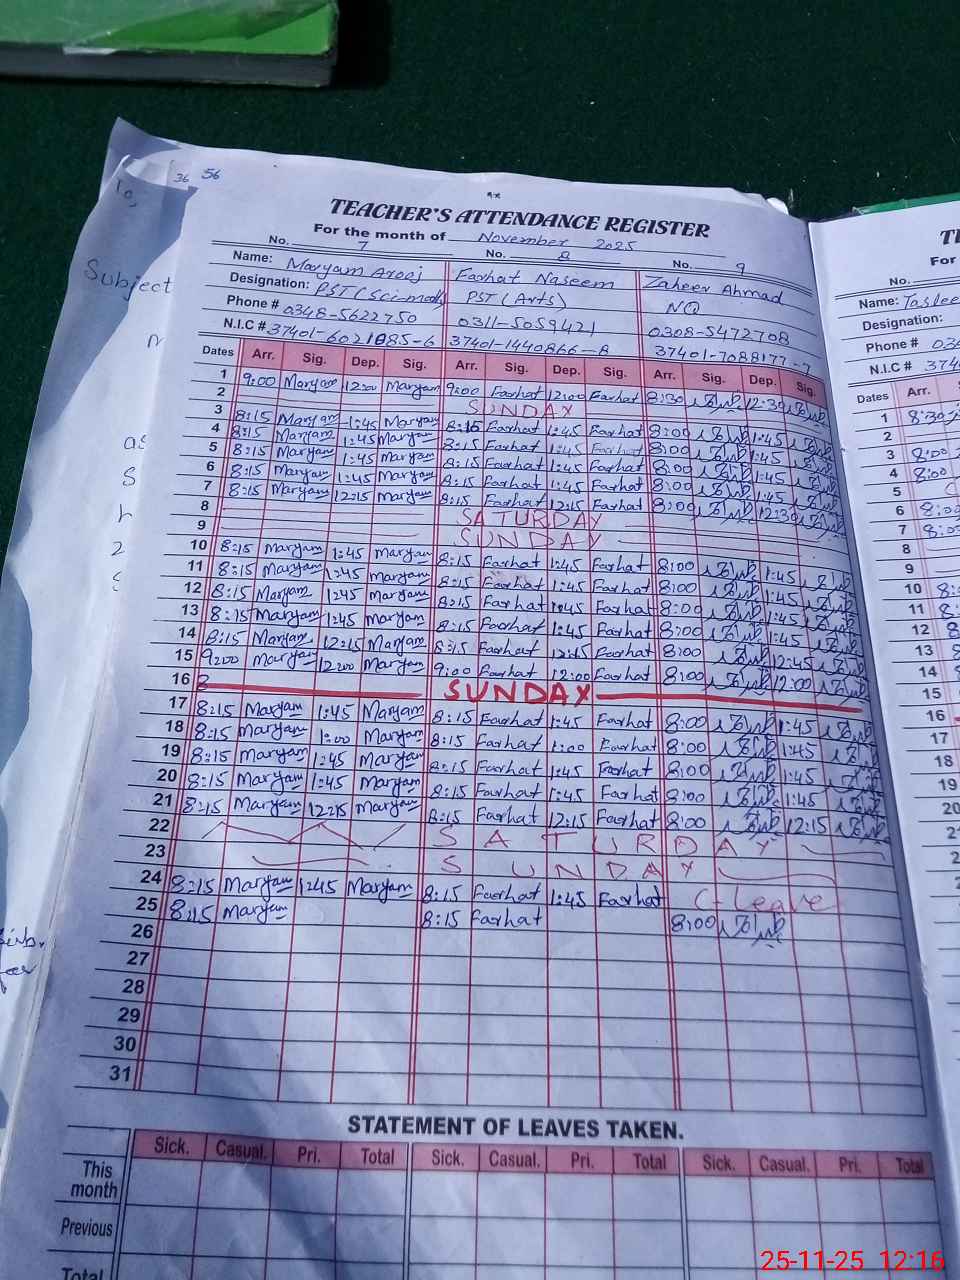 36 56
To,
Subject
TEACHER'S ATTENDANCE REGISTER
For the month of November 2025
No. 7 No. 8 No. 9
Name: Maryam Arooj Farhat Naseem Zaheer Ahmad
Designation: PST (Sci-math) PST (Arts) NQ
Phone # 0348-5622750 0311-5059421 0308-5472708
N.I.C # 37401-6021085-6 37401-1440866-8 37401-7088177-7
Dates Arr. Sig. Dep. Sig. Arr. Sig. Dep. Sig. Arr. Sig. Dep. Sig.
1 9:00 Maryam 12:00 Maryam 9:00 Farhat 12:00 Farhat 8:30 12:30
2 SUNDAY
3 8:15 Maryam 1:45 Maryam 8:15 Farhat 1:45 Farhat 8:00 1:45
4 8:15 Maryam 1:45 Maryam 8:15 Farhat 1:45 Farhat 8:00 1:45
5 8:15 Maryam 1:45 Maryam 8:15 Farhat 1:45 Farhat 8:00 1:45
6 8:15 Maryam 1:45 Maryam 8:15 Farhat 1:45 Farhat 8:00 1:45
7 8:15 Maryam 12:15 Maryam 8:15 Farhat 12:15 Farhat 8:00 12:30
8 SATURDAY
9 SUNDAY
10 8:15 Maryam 1:45 Maryam 8:15 Farhat 1:45 Farhat 8:00 1:45
11 8:15 Maryam 1:45 Maryam 8:15 Farhat 1:45 Farhat 8:00 1:45
12 8:15 Maryam 1:45 Maryam 8:15 Farhat 1:45 Farhat 8:00 1:45
13 8:15 Maryam 1:45 Maryam 8:15 Farhat 1:45 Farhat 8:00 1:45
14 8:15 Maryam 12:15 Maryam 8:15 Farhat 12:15 Farhat 8:00 12:45
15 9:00 Maryam 12:00 Maryam 9:00 Farhat 12:00 Farhat 8:00 12:00
16 SUNDAY
17 8:15 Maryam 1:45 Maryam 8:15 Farhat 1:45 Farhat 8:00 1:45
18 8:15 Maryam 1:00 Maryam 8:15 Farhat 1:00 Farhat 8:00 1:45
19 8:15 Maryam 1:45 Maryam 8:15 Farhat 1:45 Farhat 8:00 1:45
20 8:15 Maryam 1:45 Maryam 8:15 Farhat 1:45 Farhat 8:00 1:45
21 8:15 Maryam 12:15 Maryam 8:15 Farhat 12:15 Farhat 8:00 12:15
22 SATURDAY
23 SUNDAY
24 8:15 Maryam 1:45 Maryam 8:15 Farhat 1:45 Farhat C-Leave
25 8:15 Maryam 8:15 Farhat 8:00
26
27
28
29
30
31
STATEMENT OF LEAVES TAKEN.
Sick. Casual. Pri. Total Sick. Casual. Pri. Total Sick. Casual. Pri. Total
This month
Previous
Total
For
No.
Name:
Designation:
Phone # 03
N.I.C # 374
Dates Arr.
1 8:30
2
3 8:00
4 8:00
5
6 8:00
7
8
9
10
11
12
13
14
15
16
17
18
19
20
25-11-25 12:16